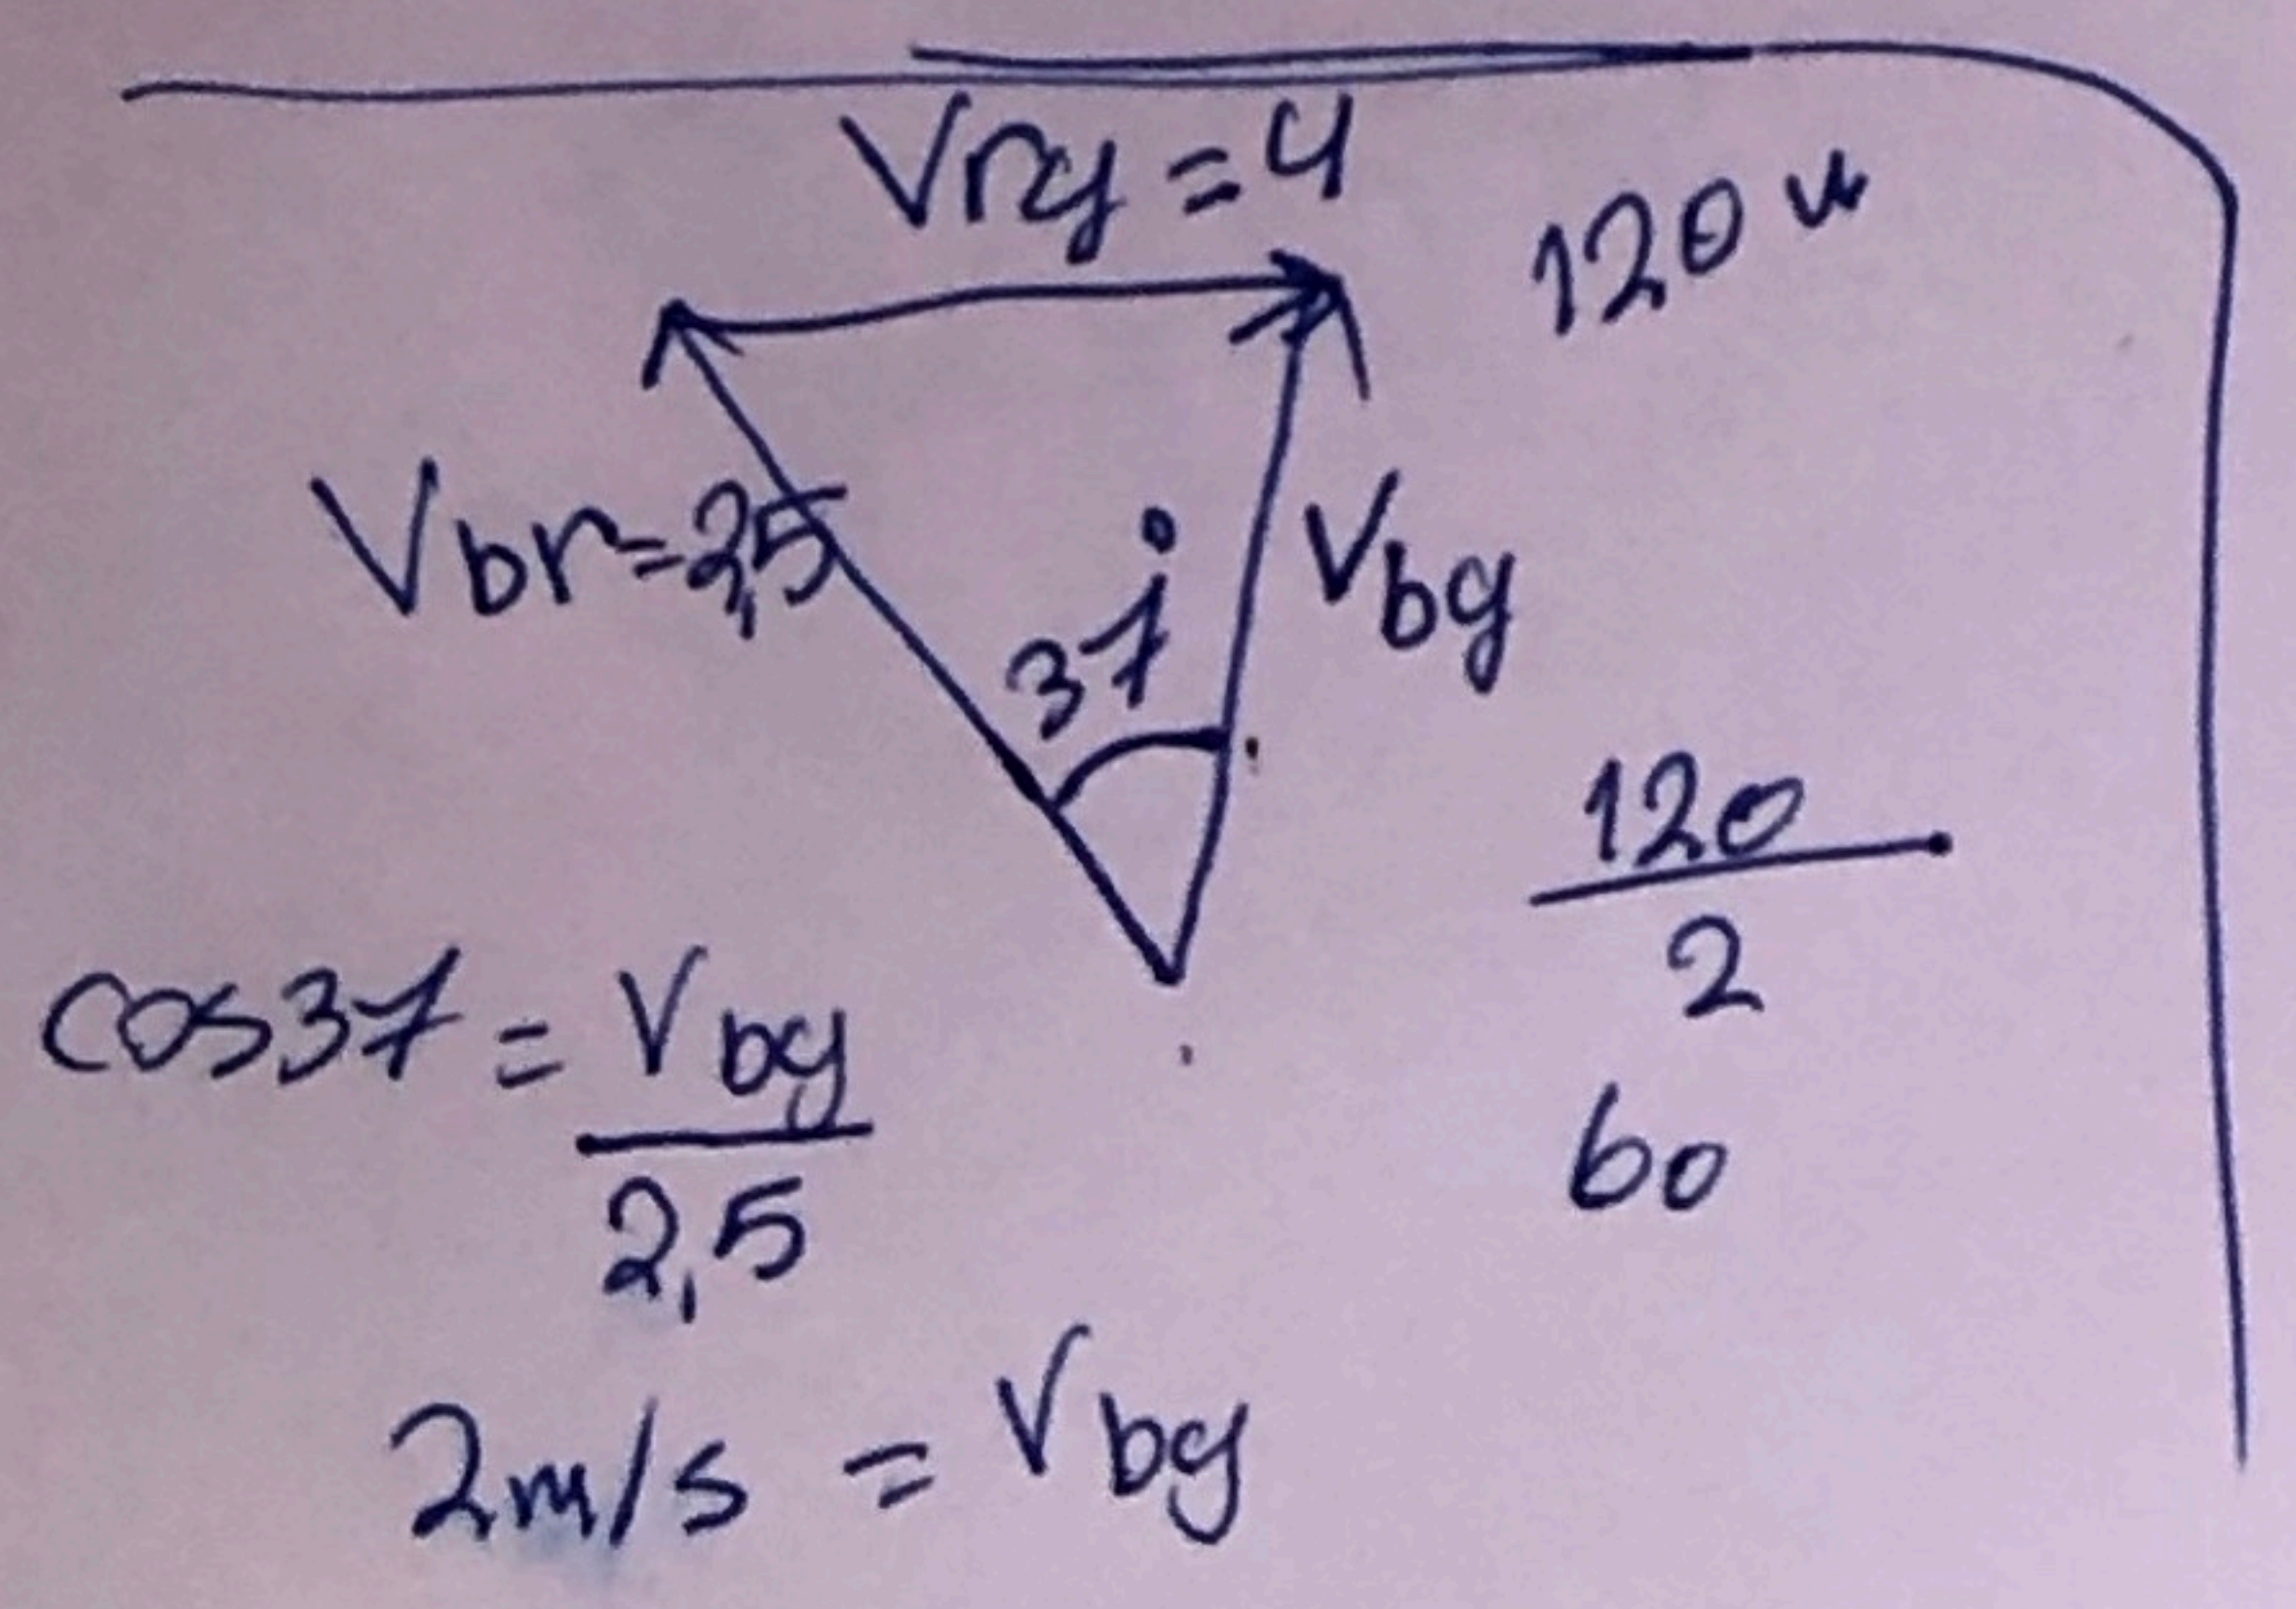 Vrg = 4
120 m
Vbr = 2,5
37°
Vbg
120
2
60
cos37 = Vbg
2,5
2m/s = Vbg